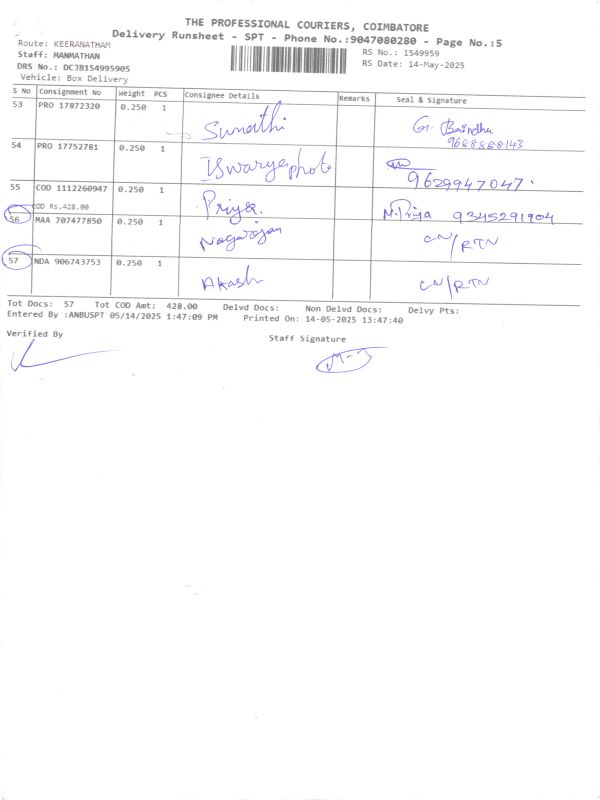 THE PROFESSIONAL COURIERS, COIMBATORE
Delivery Runsheet - SPT - Phone No.:9047080280 - Page No.:5
Route: KEERANATHAM
Staff: MANMATHAN
DRS No.: DCJB154995905
Vehicle: Box Delivery
RS No.: 1549959
RS Date: 14-May-2025
S No Consignment No Weight PCS Consignee Details Remarks Seal & Signature
53 PRO 17872320 0.250 1 Sumathi G.
54 PRO 17752781 0.250 1 Iswarya photo 9629947047.
55 COD 1112260947 0.250 1 Priya. N.Priya 9345291904
COD Rs.428.00
56 MAA 707477850 0.250 1 Nagarajan CN/RTN
57 NDA 906743753 0.250 1 Akash CN/RTN
Tot Docs: 57 Tot COD Amt: 428.00 Delvd Docs: Non Delvd Docs: Delvy Pts:
Entered By :ANBUSPT 05/14/2025 1:47:09 PM Printed On: 14-05-2025 13:47:40
Verified By
Staff Signature